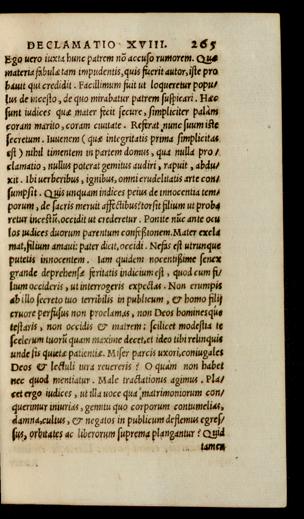 DECLAMATIO XVIII. 265
Ego uero iuxta hunc patrem nō accuso rumorem. Quæ
materia fabulæ tam impudentis, quis fuerit autor, iste pro
bauit qui credidit. Facillimum fuit ut loqueretur popu/
lus de incesto, de quo mirabatur patrem suspicari. Hæc
sunt iudices quæ mater fecit secure, simpliciter palàm
coram marito, coram ciuitate. Referat nunc suum iste
secretum. Iuuenem (quæ integritatis prima simplicitas
est) nihil timentem in partem domus, qua nulla pro/
clamatio, nullus poterat gemitus audiri, rapuit, abdu/
xit. Ibi uerberibus, ignibus, omni crudelitatis arte con/
sumpsit. Quis unquam iudices peius de innocentia tem/
porum, de sacris meruit affectibus? torsit filium ut proba
retur incestū, occidit ut crederetur. Ponite nūc ante ocu
los iudices duorum parentum confeßionem. Mater excla
mat, filium amaui: pater dicit, occidi. Nefas est utrunque
putetis innocentem. Iam quidem nocentißime senex
grande deprehensæ feritatis indicium est, quod cum fi/
lium occideris, ut interrogeris expectas. Non erumpis
ab illo secreto tuo terribilis in publicum, & homo filij
cruore perfusus non proclamas, non Deos hominesque
testaris, non occidis & matrem: scilicet modestia te
scelerum tuorū quam maxime decet, et ideo tibi relinquis
unde sis quietæ patientiæ. Miser parcis uxori, coniugales
Deos & lectuli iura reuereris? O quàm non habet
nec quod mentiatur. Male tractationis agimus. Pla/
cet ergo iudices, ut illa uoce qua matrimoniorum con/
querimur iniurias, gemitu quo corporum contumelias,
damna, cultus, & negatos in publicum destemus egres/
sus, orbitates ac liberorum suprema plangantur? Quid
tamen